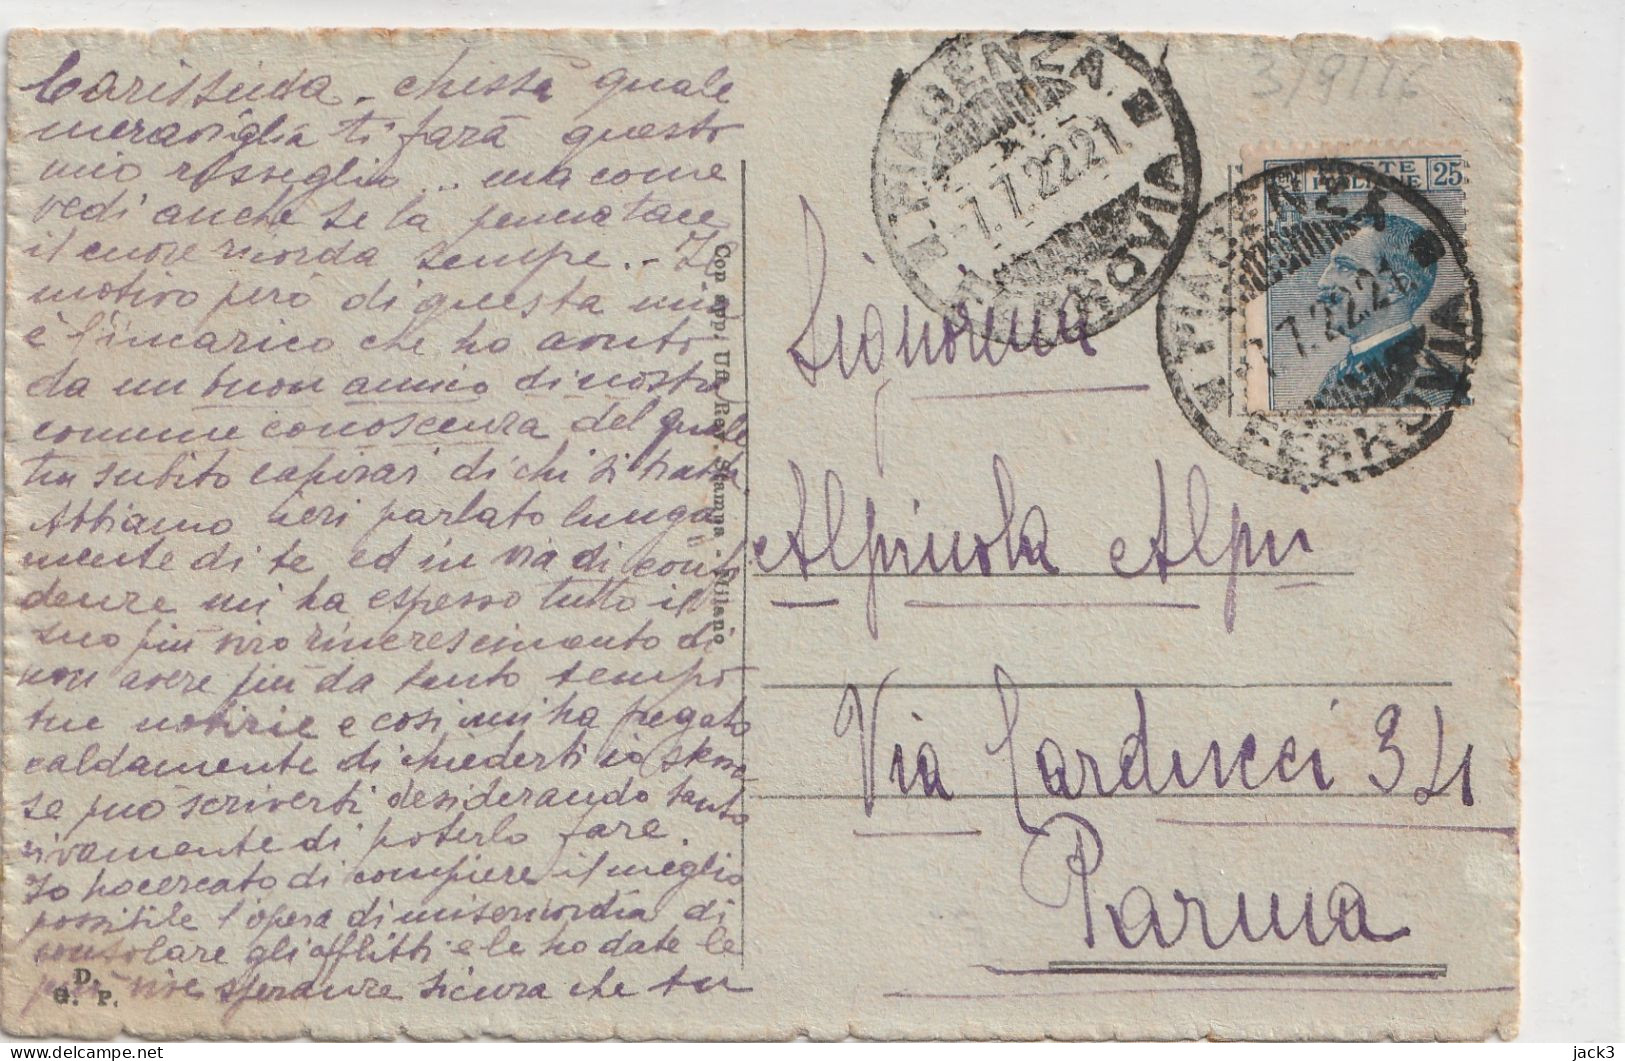 Carissima - chissà quale
meraviglia ti farà questo
mio risveglio... ma come
vedi anche se la penna tace
il cuore ricorda sempre. - Il
motivo però di questa mia
è l'incarico che ho avuto
da un buon amico di nostra
comune conoscenza del quale
tu subito capirai di chi si tratta
Abbiamo ieri parlato lunga
mente di te ed in via di confi
denze mi ha espresso tutto il
suo più vivo rincrescimento di
non avere più da tanto tempo
tue notizie e così mi ha pregato
caldamente di chiederti io stessa
se può scriverti desiderando tanto
vivamente di poterlo fare.
Io ho cercato di compiere il meglio
possibile l'opera di misericordia di
consolare gli afflitti e le ho date le
più vive speranze sicura che tu
D.
G. P.
Cop. app. Uff. Rev. Stampa - Milano
3/9/16
PIACENZA
-7.7.22 21
FERROVIA
POSTE ITALIANE
Cent 25
PIACENZA
-7.7.22 21
FERROVIA
Signorina
Alpinola Alpi
Via Carducci 34
Parma
jack3